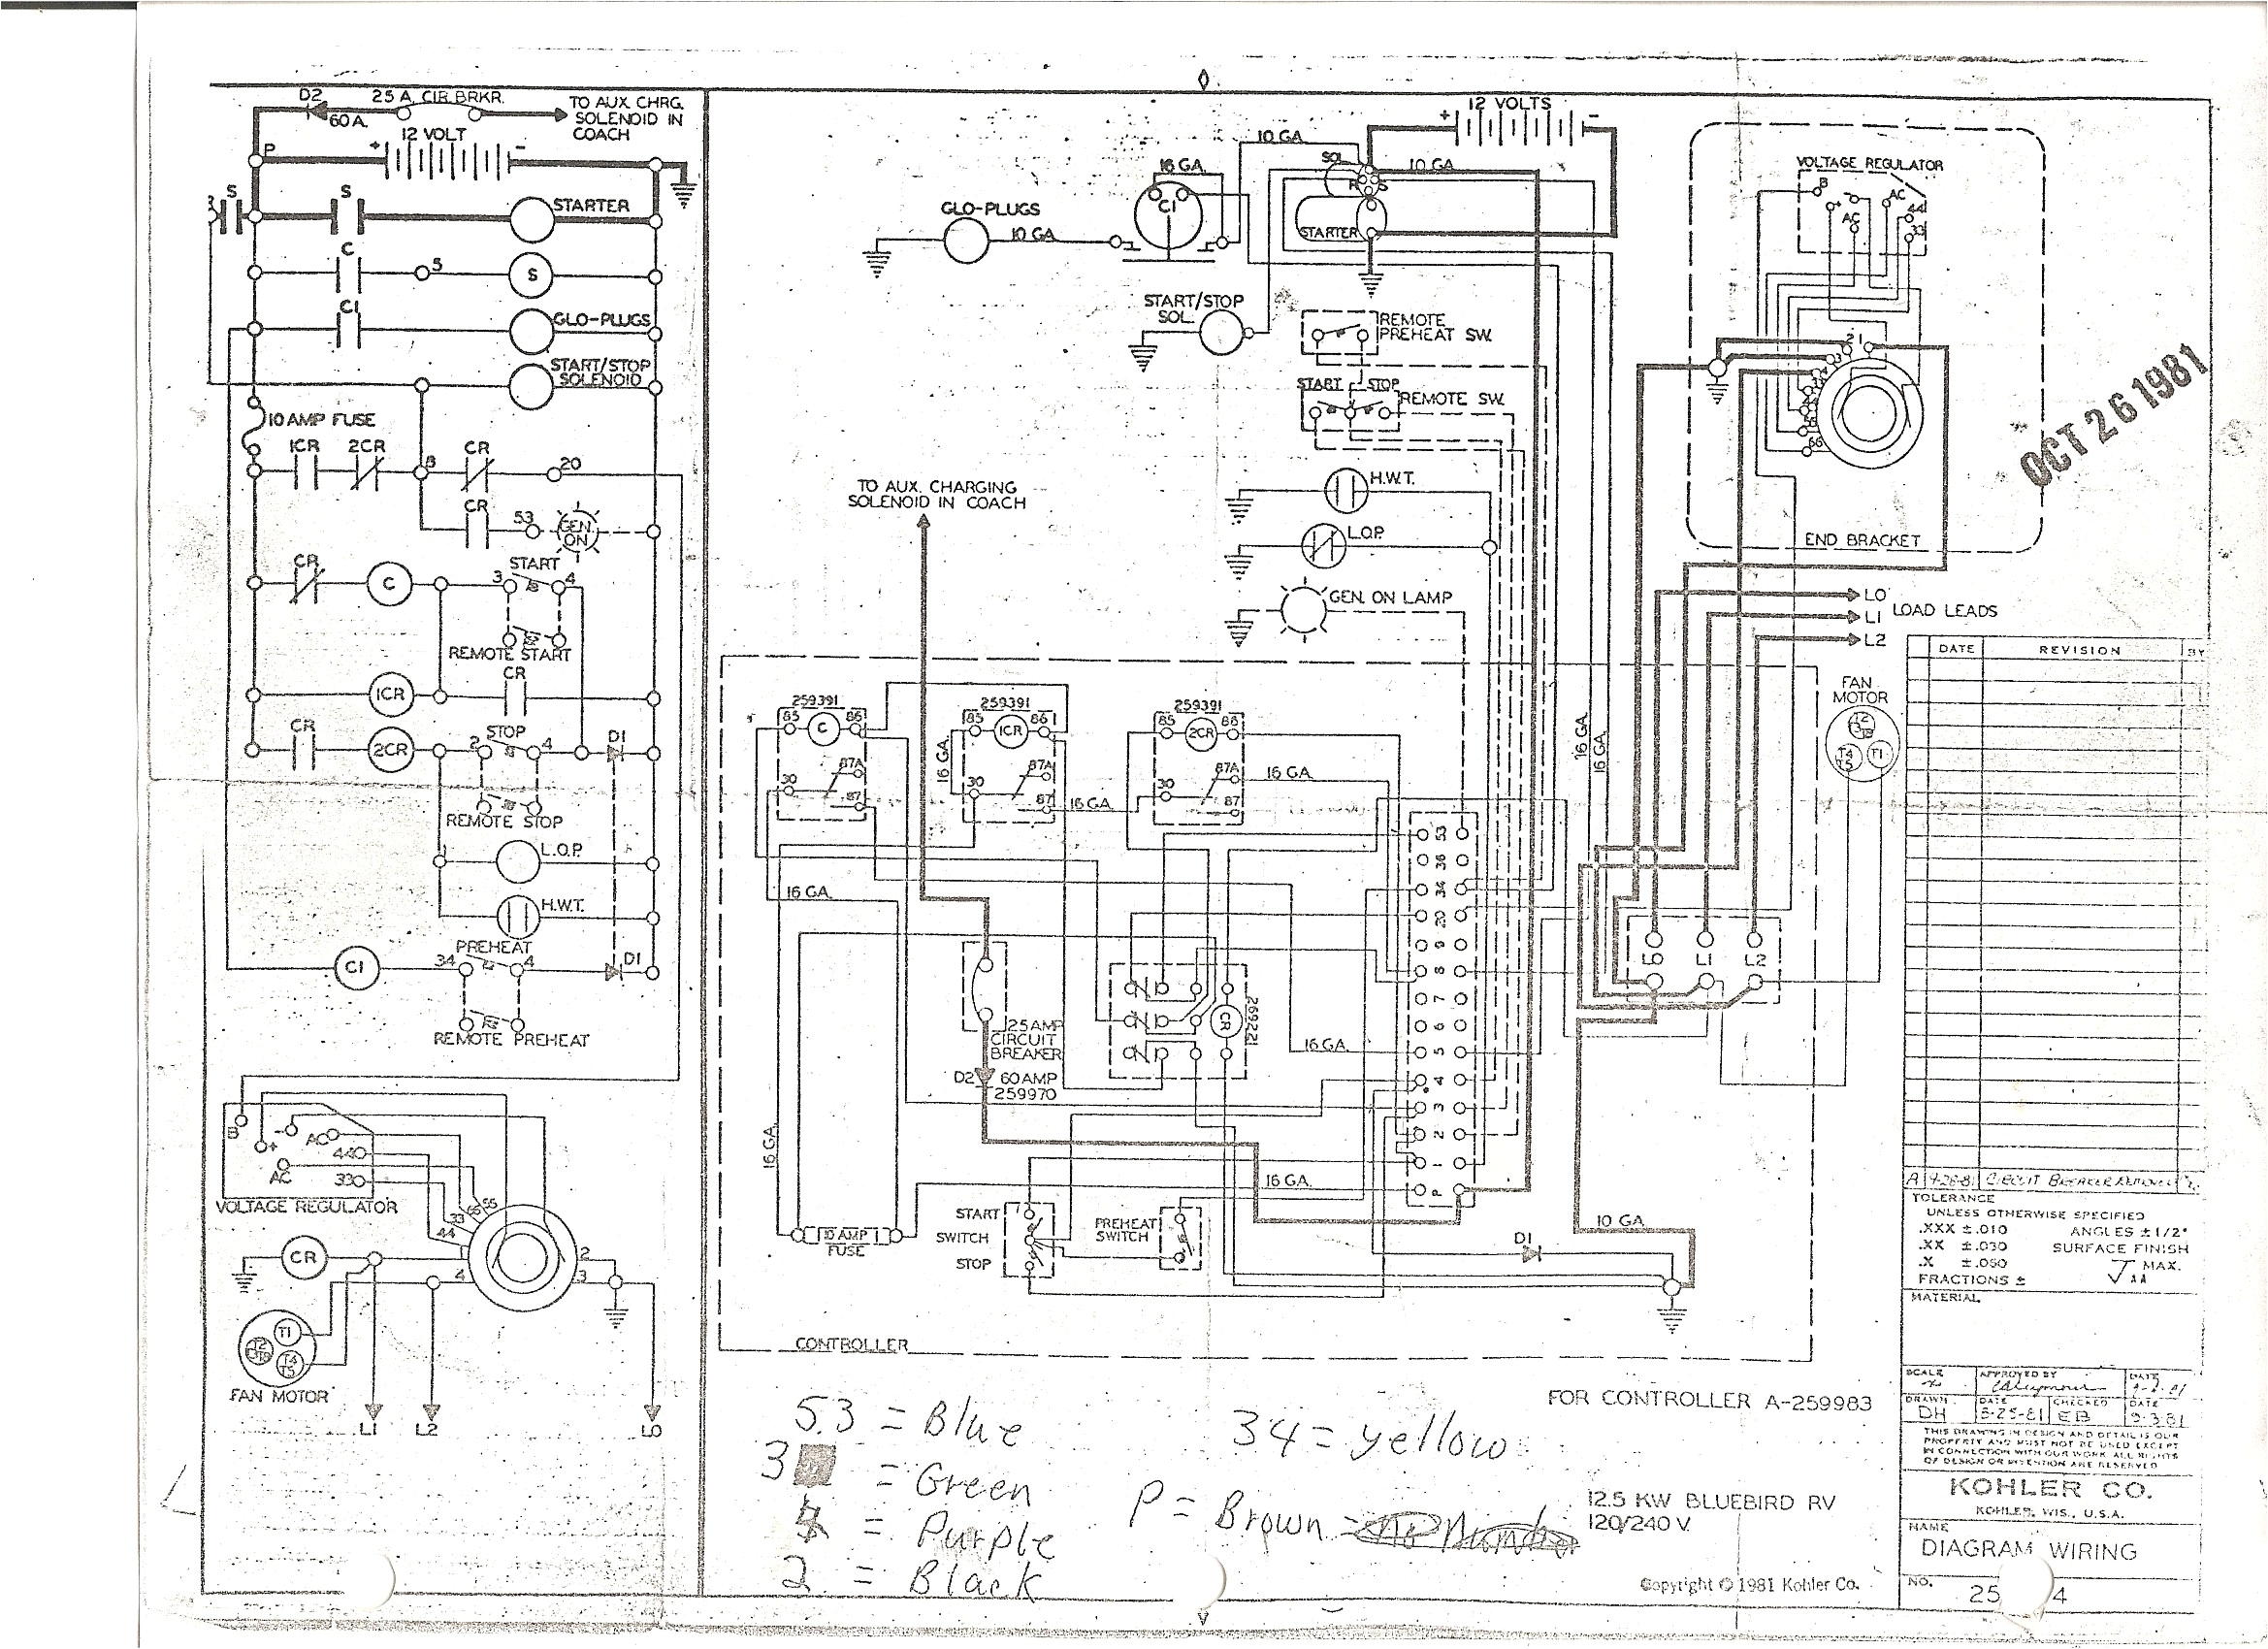 D2
25 A. CIR. BRKR.
60 A.
TO AUX. CHRG.
SOLENOID IN
COACH
12 VOLT
P
+
-
S
S
STARTER
C
S
S
C1
GLO-PLUGS
START/STOP
SOLENOID
10 AMP FUSE
1CR
2CR
8
CR
20
CR
53
GEN.
ON
CR
C
START
3
4
REMOTE START
1CR
CR
CR
2CR
STOP
2
4
D1
REMOTE STOP
L.O.P.
H.W.T.
PREHEAT
C1
34
4
D1
REMOTE PREHEAT
B
+
-
AC
44
AC
33
VOLTAGE REGULATOR
55
66
33
44
CR
1
2
4
3
T1
T4
T5
FAN MOTOR
L1
L2
L0
12 VOLTS
+
-
10 GA.
SOL.
10 GA.
16 GA.
C1
R
S
GLO-PLUGS
10 GA.
STARTER
START/STOP
SOL.
REMOTE
PREHEAT SW.
START
STOP
REMOTE SW.
TO AUX. CHARGING
SOLENOID IN COACH
H.W.T.
L.O.P.
GEN. ON LAMP
VOLTAGE REGULATOR
B
+
-
AC
AC
44
33
2
1
3
66
END BRACKET
OCT 26 1981
L0
L1 LOAD LEADS
L2
FAN
MOTOR
T4
T5
T1
259391
85
86
C
30
87A
87
259391
85
86
1CR
16 GA.
30
87A
87
16 GA.
259391
85
86
2CR
30
87A
87
16 GA.
16 GA.
16 GA.
53
36
34
20
9
8
7
6
5
4
3
2
1
P
L0
L1
L2
16 GA.
CR
269221
25 AMP
CIRCUIT
BREAKER
D2
60 AMP
259970
16 GA.
16 GA.
16 GA.
10 AMP
FUSE
START
SWITCH
STOP
PREHEAT
SWITCH
D1
10 GA.
CONTROLLER
FOR CONTROLLER A-259983
53 = Blue
3 = Green
= Purple
2 = Black
34 = yellow
P = Brown
12.5 KW BLUEBIRD RV
120/240 V.
Copyright © 1981 Kohler Co.
DATE
REVISION
BY
A
CIRCUIT BREAKER REMOVED
TOLERANCE
UNLESS OTHERWISE SPECIFIED
.XXX ±.010
ANGLES ±1/2°
.XX ±.030
SURFACE FINISH
.X ±.060
MAX.
FRACTIONS ±
MATERIAL
SCALE
APPROVED BY
DATE
DRAWN
DH
DATE
8-25-81
CHECKED
EB
DATE
9.3.81
THIS DRAWING IN DESIGN AND DETAIL IS OUR
PROPERTY AND MUST NOT BE USED EXCEPT
IN CONNECTION WITH OUR WORK ALL RIGHTS
OF DESIGN OR INVENTION ARE RESERVED
KOHLER CO.
KOHLER, WIS., U.S.A.
NAME
DIAGRAM WIRING
NO.
25
4